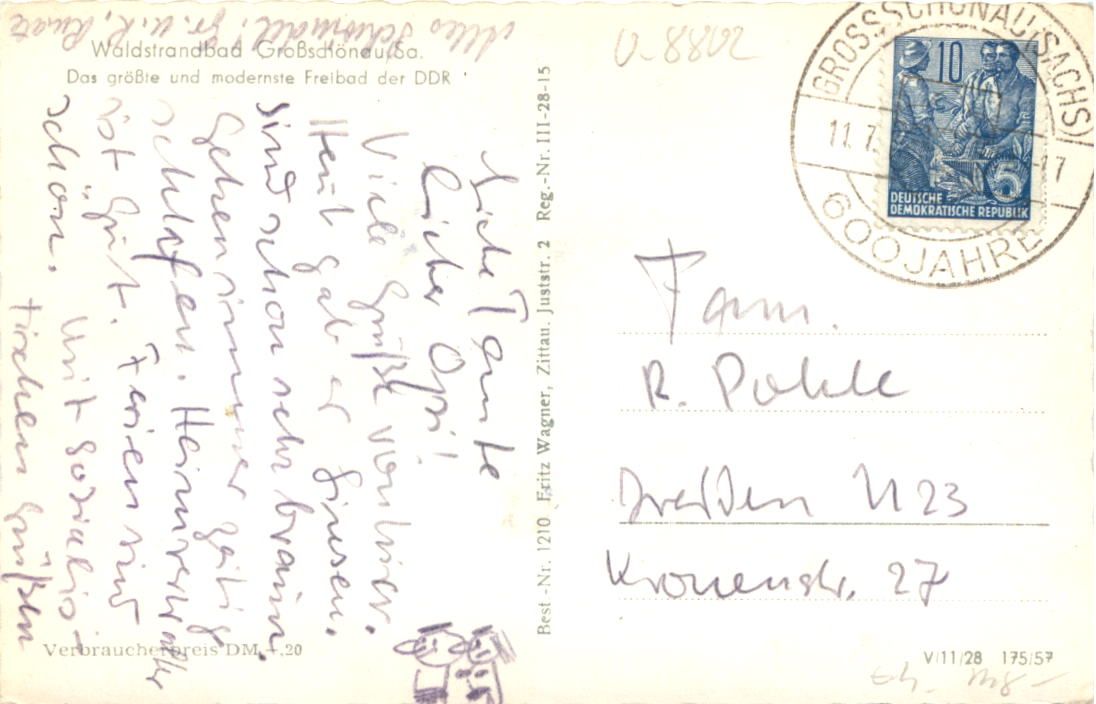 Waldstrandbad Großschönau/Sa.
Das größte und modernste Freibad der DDR
Liebe Tante
Lieber Opi!
Viele Grüße von hier.
Heut gab er Linsen.
Sind schon sehr braun.
Gehen immer zeitig
schlafen. Heimverwalter
ist gut. Ferien sind
schön. Mit sozialis-
tischen Grüßen
Best.-Nr. 1210 Fritz Wagner, Zittau, Juststr. 2 Reg.-Nr. III-28-15
GROSSSCHÖNAU (SACHS)
11.7.
-17
600 JAHRE
10
5
DEUTSCHE
DEMOKRATISCHE REPUBLIK
Fam.
R. Pohle
Dresden N 23
Kronenstr. 27
Verbraucherpreis DM -,20
V/11/28 175/57